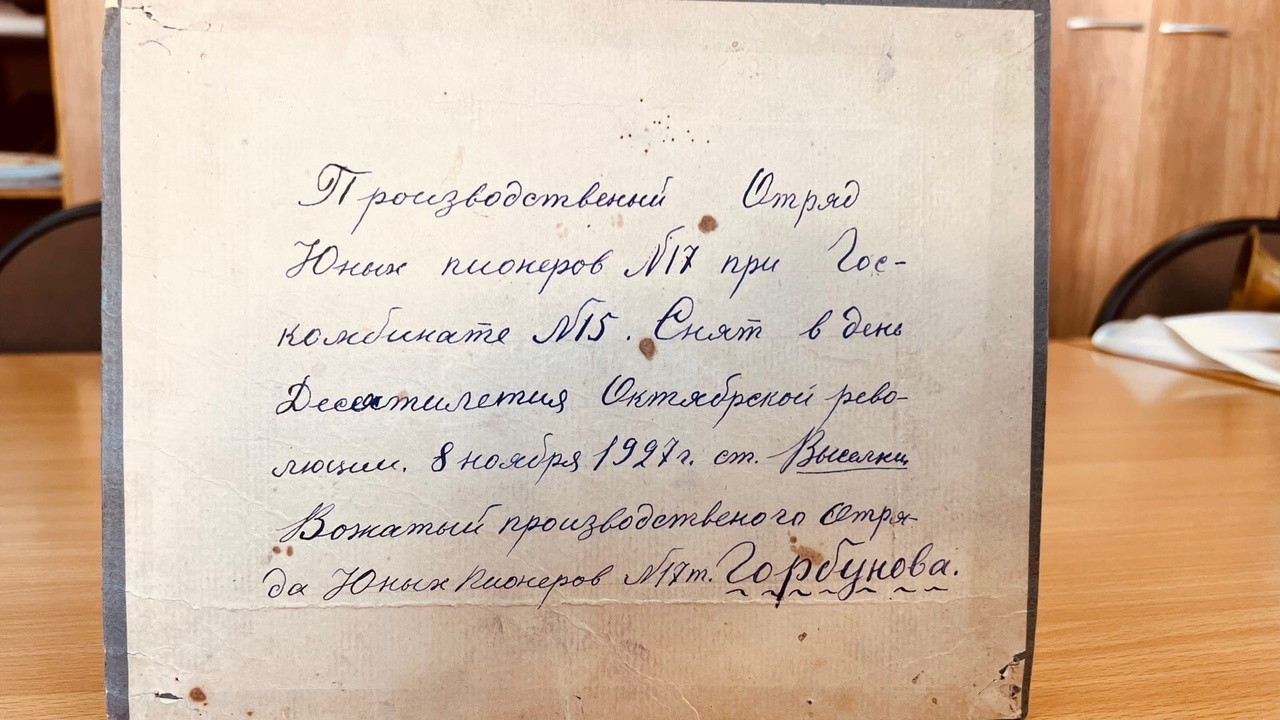 Производственый Отряд
Юных пионеров №17 при Гос-
комбинате №15. Снят в день
Десятилетия Октябрской рево-
люции. 8 ноября 1927г. ст. Выселки
Вожатый производственого Отря-
да Юных Пионеров №17 т. Горбунова.